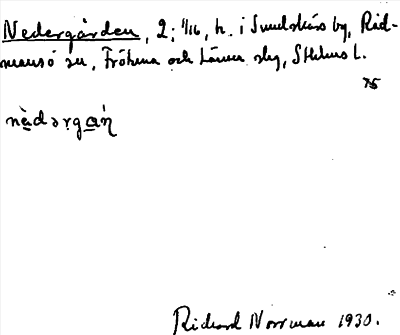 Nedergården, 2; 1/16, h. i Sundskärs by, Råd-
mansö sn, Fröhuna och Länna slg, Sthlms l.
75
nèdərgàn
Richard Norrman 1930.